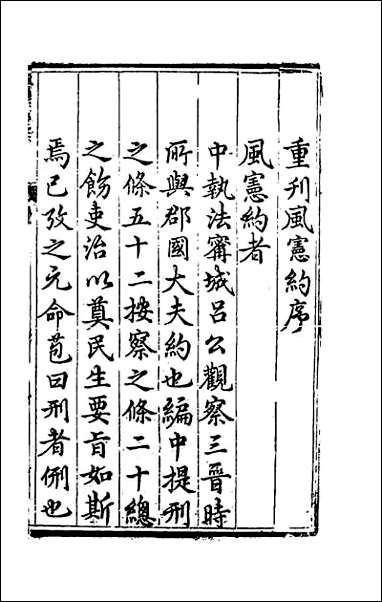 重刋風憲約序
風憲約者
中執法甯城吕公觀察三晉時
所與郡國大夫約也編中提刑
之條五十二按察之條二十總
之飭吏治以奠民生要旨如斯
焉已攷之元命苞曰刑者侀也